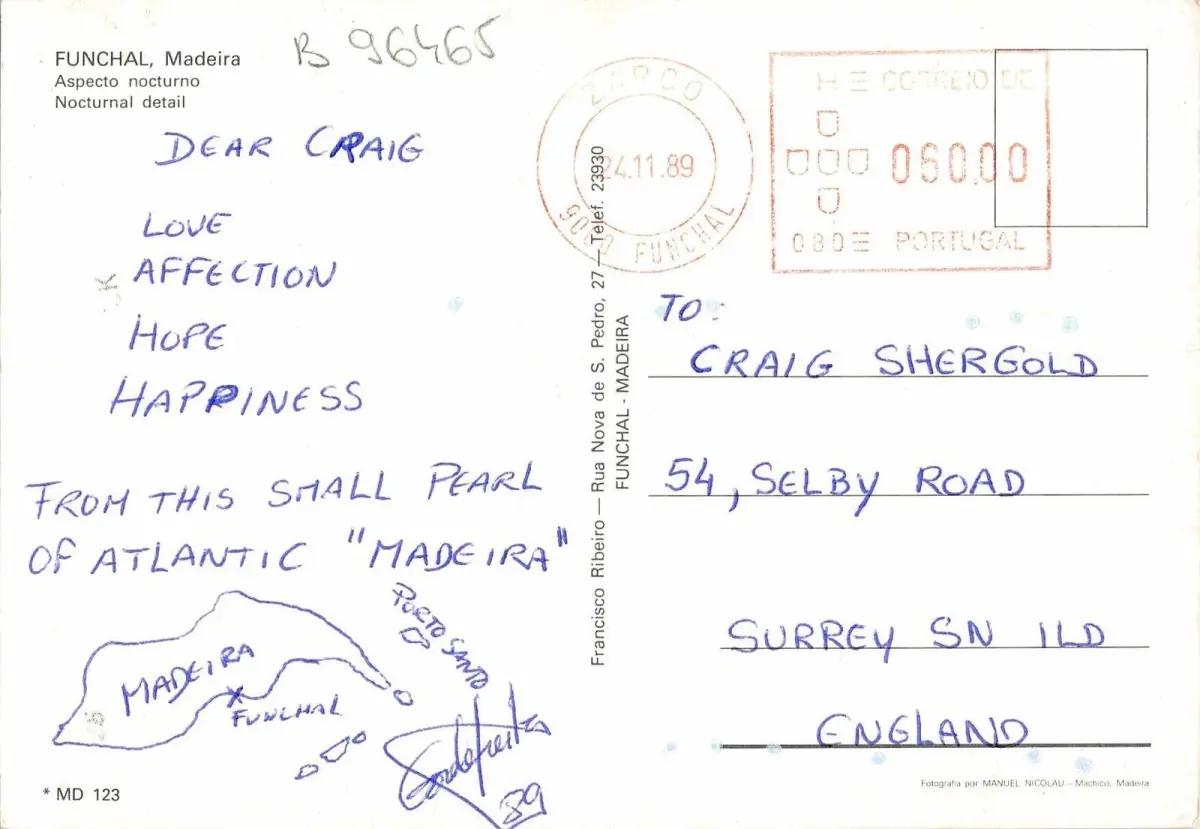 FUNCHAL, Madeira
Aspecto nocturno
Nocturnal detail
B 96465
DEAR CRAIG
LOVE
AFFECTION
HOPE
HAPPINESS
FROM THIS SMALL PEARL
OF ATLANTIC "MADEIRA"
MADEIRA
FUNCHAL
PORTO SANTO
89
* MD 123
Francisco Ribeiro — Rua Nova de S. Pedro, 27 — Telef. 23930
FUNCHAL - MADEIRA
ZARCO
24.11.89
9000 FUNCHAL
CORREIO DE
060.00
PORTUGAL
TO:
CRAIG SHERGOLD
54, SELBY ROAD
SURREY SN 1LD
ENGLAND
Fotografia por MANUEL NICOLAU — Machico, Madeira